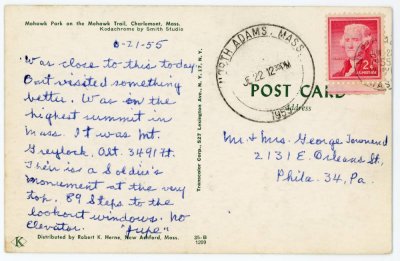 Mohawk Park on the Mohawk Trail, Charlemont, Mass.
Kodachrome by Smith Studio
6-21-55
Was close to this today
But visited something
better. Was on the
highest summit in
Mass. It was Mt.
Greylock, Alt. 3491 ft.
Their is a Soldier's
monument at the very
top, 89 Steps to the
lookout windows. No
Elevator. "Jupe"
Distributed by Robert K. Herne, New Ashford, Mass.
K
35-B
1209
Transcolor Corp., 527 Lexington Ave., N. Y. 17, N. Y.
NORTH ADAMS, MASS.
22 12 PM
1955
2¢
POST CARD
Address
Mr & Mrs. George Townend
2131 E. Orleans St,
Phila. 34, Pa.